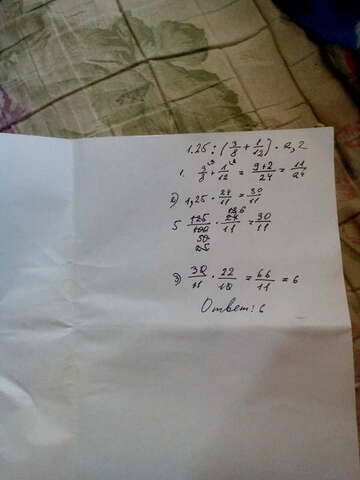 1.25 : (3/8 + 1/12) · 2,2
1. 3/8 + 1/12 = 9+2/24 = 11/24
2) 1,25 · 24/11 = 30/11
5 125/100 · 24/11 = 30/11
50
25
3) 30/11 · 22/10 = 66/11 = 6
Ответ: 6